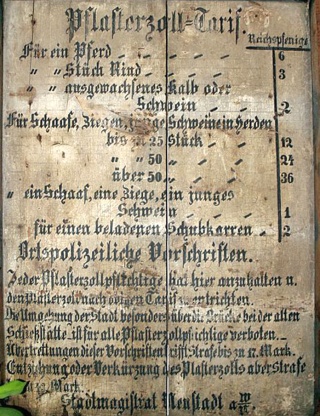 Pflasterzoll-Tarif
Reichspfenige
Für ein Pferd - - - - 6
" " Stück Rind - - - - 3
" " ausgewachsenes Kalb oder
Schwein - - - 2
Für Schaafe, Ziegen, junge Schweine in Herden
bis zu 25 Stück - - 12
" " 50 " - - 24
über 50 " - - 36
" ein Schaaf, eine Ziege, ein junges
Schwein - - - 1
für einen beladenen Schubkarren - 2
Ortspolizeiliche Vorschriften.
Jeder Pflasterzollpflichtige hat hier anzuhalten u.
den Pflasterzoll nach obigen Tarif zu entrichten.
Die Umgehung der Stadt besonders über die Brücke bei der alten
Schießstätte ist für alle Pflasterzollpflichtige verboten.
Übertrettungen dieser Vorschriften trifft Strafe bis zu 12 Mark.
Entziehung oder Verkürzung des Pflasterzolls aber strafe
Mark.
Stadtmagistrat Neustadt a/W